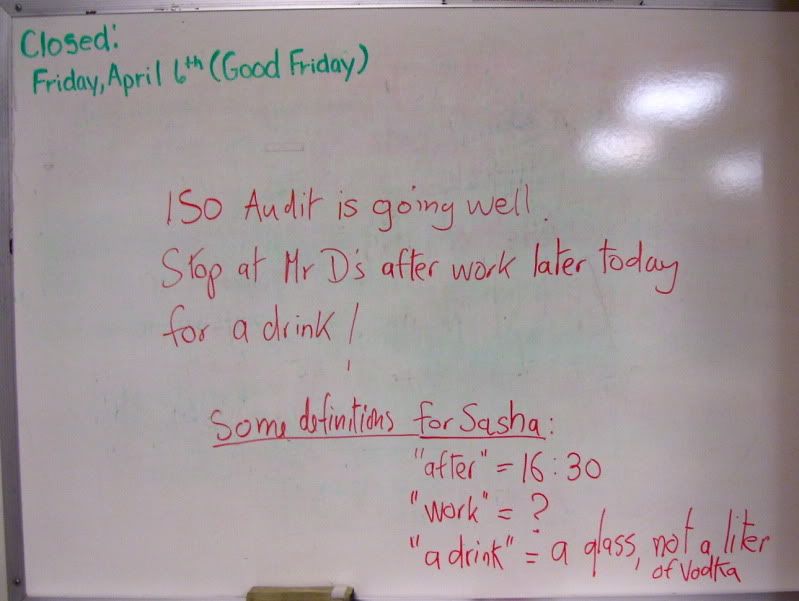 Closed:
Friday, April 6th (Good Friday)
ISO Audit is going well.
Stop at Mr D's after work later today
for a drink!
Some definitions for Sasha:
"after" = 16:30
"work" = ?
"a drink" = a glass, not a liter
of Vodka